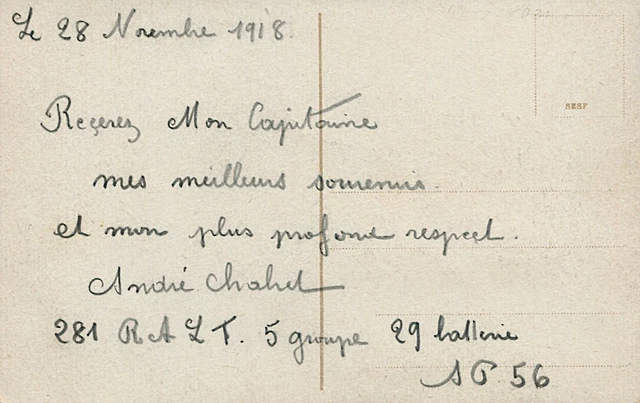 Le 28 Novembre 1918.
SESF
Reçevez Mon Capitaine
mes meilleurs souvenirs.
et mon plus profond respect.
André Chabet
281 R A L T. 5 groupe 29 batterie
S P 56